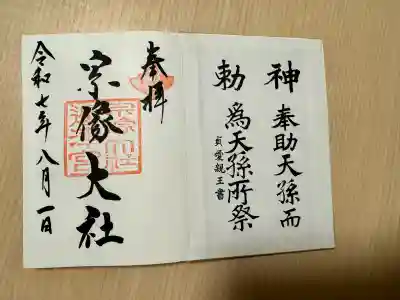 神勅
奉助天孫而
為天孫所祭
貞愛親王書
奉拝
宗像大社
令和七年八月一日